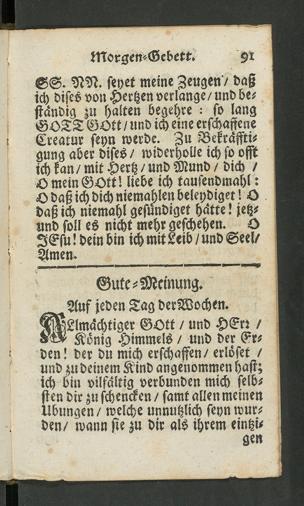 Morgen-Gebett. 91
SS. NN. seyet meine Zeugen / daß
ich dises von Hertzen verlange / und be-
ständig zu halten begehre : so lang
GOTT GOtt / und ich eine erschaffene
Creatur seyn werde. Zu Bekräffti-
gung aber dises / widerholle ich so offt
ich kan / mit Hertz / und Mund / dich /
O mein GOtt! liebe ich tausendmahl :
O daß ich dich niemahlen beleydiget! O
daß ich niemahl gesündiget hätte! jetz-
und soll es nicht mehr geschehen. O
JEsu! dein bin ich mit Leib / und Seel /
Amen.
Gute-Meinung.
Auf jeden Tag der Wochen.
ALmächtiger GOtt / und HErr /
König Himmels / und der Er-
den! der du mich erschaffen / erlöset /
und zu deinem Kind angenommen hast;
ich bin vilfältig verbunden mich selb-
sten dir zu schencken / samt allen meinen
Ubungen / welche unnutzlich seyn wur-
den / wann sie zu dir als ihrem eintzi-
gen